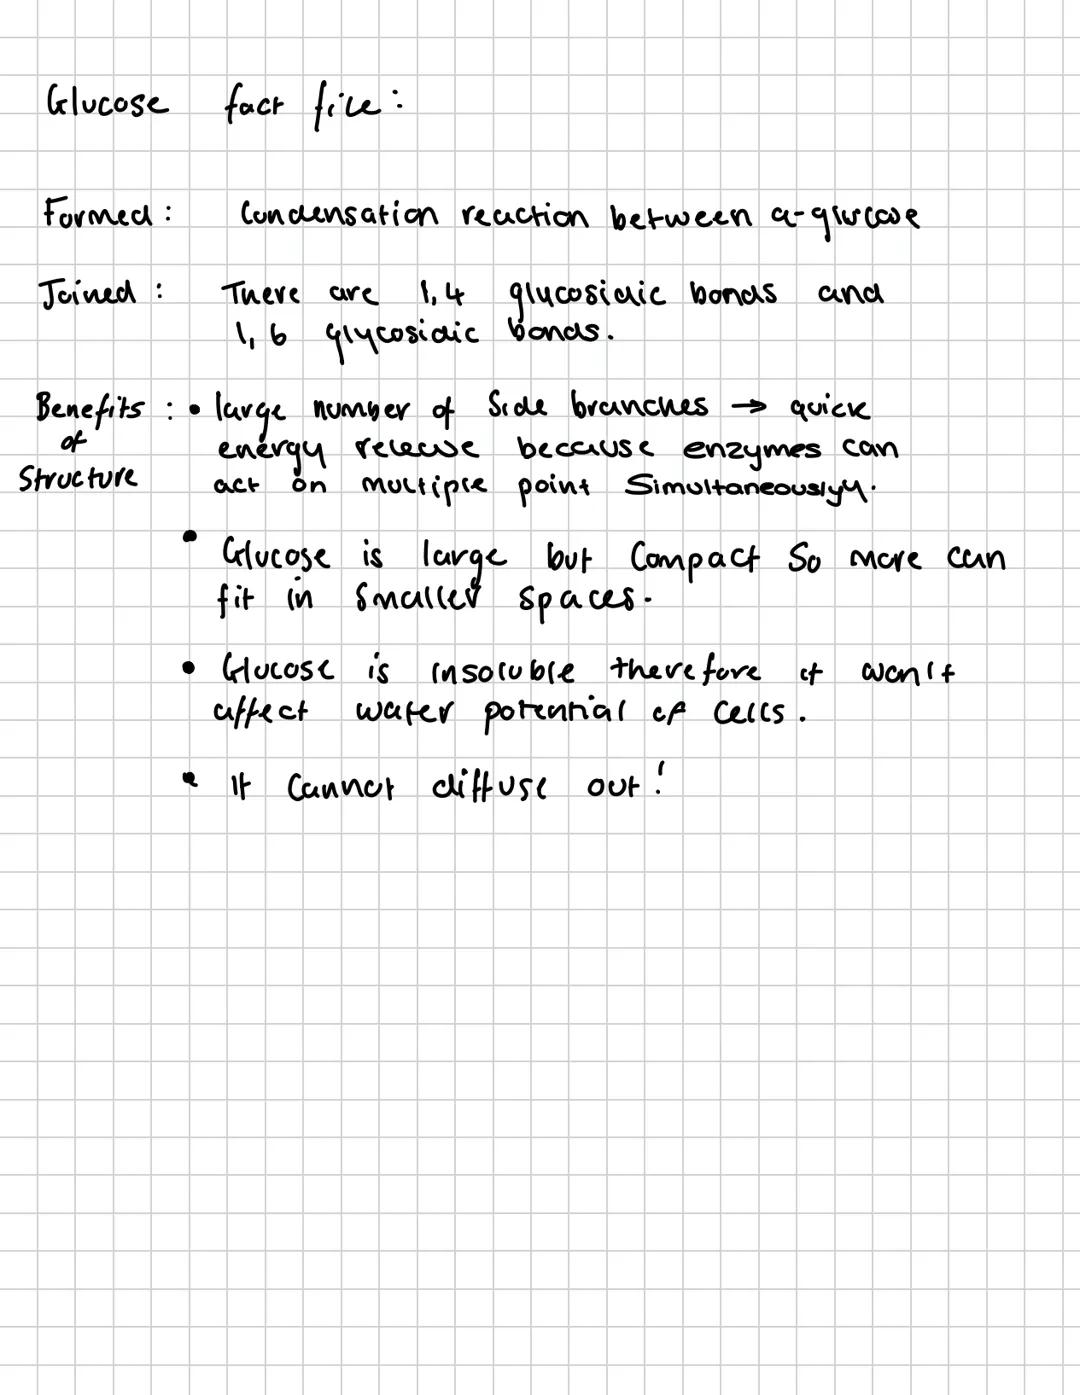 Glucose fact file:
Formed: Condensation reaction between α-glucose
Joined: There are 1,4 glucosidic bonds and
1,6 glycosidic bonds.
Benefits of Structure:
• large number of side branches → quick
energy release because enzymes can
act on multiple point Simultaneouslyy.
• Glucose is large but Compact So more can
fit in smaller spaces.
• Glucose is insoluble therefore it won't
affect water potential of cells.
• It Cannot diffuse out!